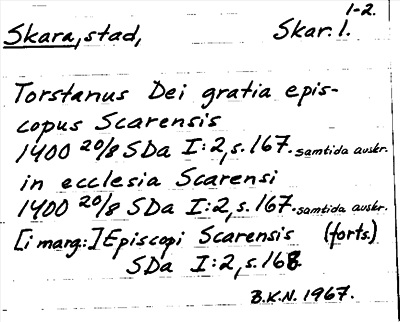 1-2.
Skara, stad, Skar. l.
Torstanus Dei gratia epis-
copus Scarensis
1400 20/8 SDa I:2, s. 167. samtida avskr.
in ecclesia Scarensi
1400 20/8 SDa I:2, s. 167. samtida avskr.
[i marg:] Episcopi Scarensis (forts.)
SDa I:2, s. 168.
B.K.N. 1967.